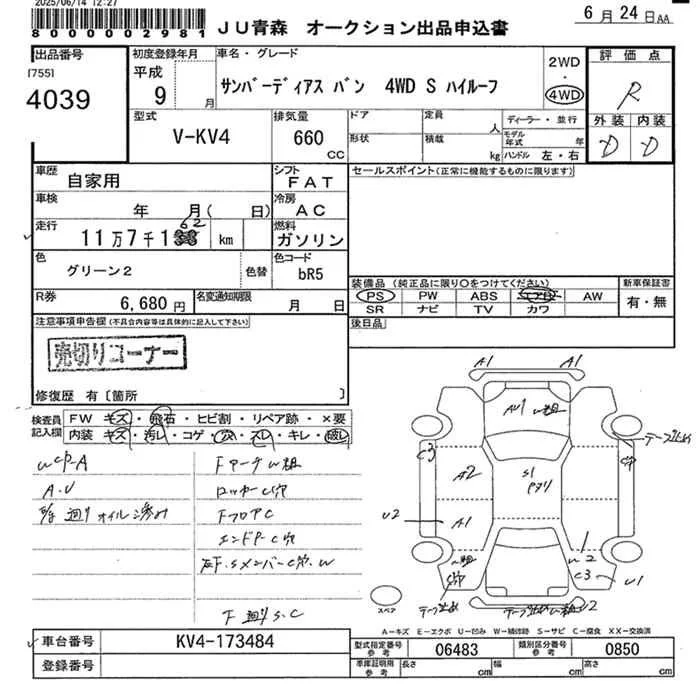 2025/06/14 12:27
80000002981
JU青森 オークション出品申込書
6月24日AA
出品番号
[755]
4039
初度登録年月
平成
9 月
車名・グレード
サンバーディアス バン 4WD S ハイルーフ
2WD
・
4WD
評価点
R
外装 内装
D D
型式
V-KV4
排気量
660
CC
ドア
定員
人
形状
積載
kg
ディーラー・並行
モデル年式 年
ハンドル 左・右
車歴
自家用
シフト
FAT
セールスポイント(正常に機能するものに限ります)
車検
年 月( 日)
冷房
AC
走行
11万7千1 62 km
燃料
ガソリン
色
グリーン2
色替
色コード
bR5
R券
6,680円
名変通知期限
月 日
装備品(純正品に限り○をつけてください)
PS PW ABS AW
SR ナビ TV カワ
新車保証書
有・無
注意事項申告欄(不具合内容等は具体的に記入して下さい)
後日品
売切りコーナー
修復歴 有〔箇所 〕
検査員記入欄
FW キズ・飛石・ヒビ割・リペア跡・×要
内装 キズ・汚レ・コゲ・穴・スレ・キレ・破レ
A.U
オイル滲み
FアーチW粗
ロッカーC穴
FフロアC
エンドP-C穴
左F.SメンバーC穴.W
下廻りS.C
A1 A1
AU1
テープ止め
C3
A2
S1
U2
A1
W2
C3
U1
テープ止め
U2
スペア
A-キズ E-エクボ U-凹み W-補修跡 S-サビ C-腐食 XX-交換済
車台番号
KV4-173484
登録番号
型式指定番号
参考
06483
類別区分番号
参考
0850
車庫証明用
参考
長さ cm
幅 cm
高さ cm